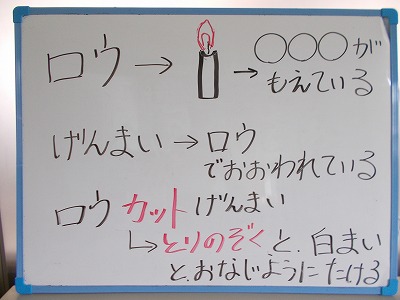 ロウ→ →○○○が
もえている
げんまい→ロウ
でおおわれている
ロウカットげんまい
↳とりのぞくと、白まい
と、おなじようにたける